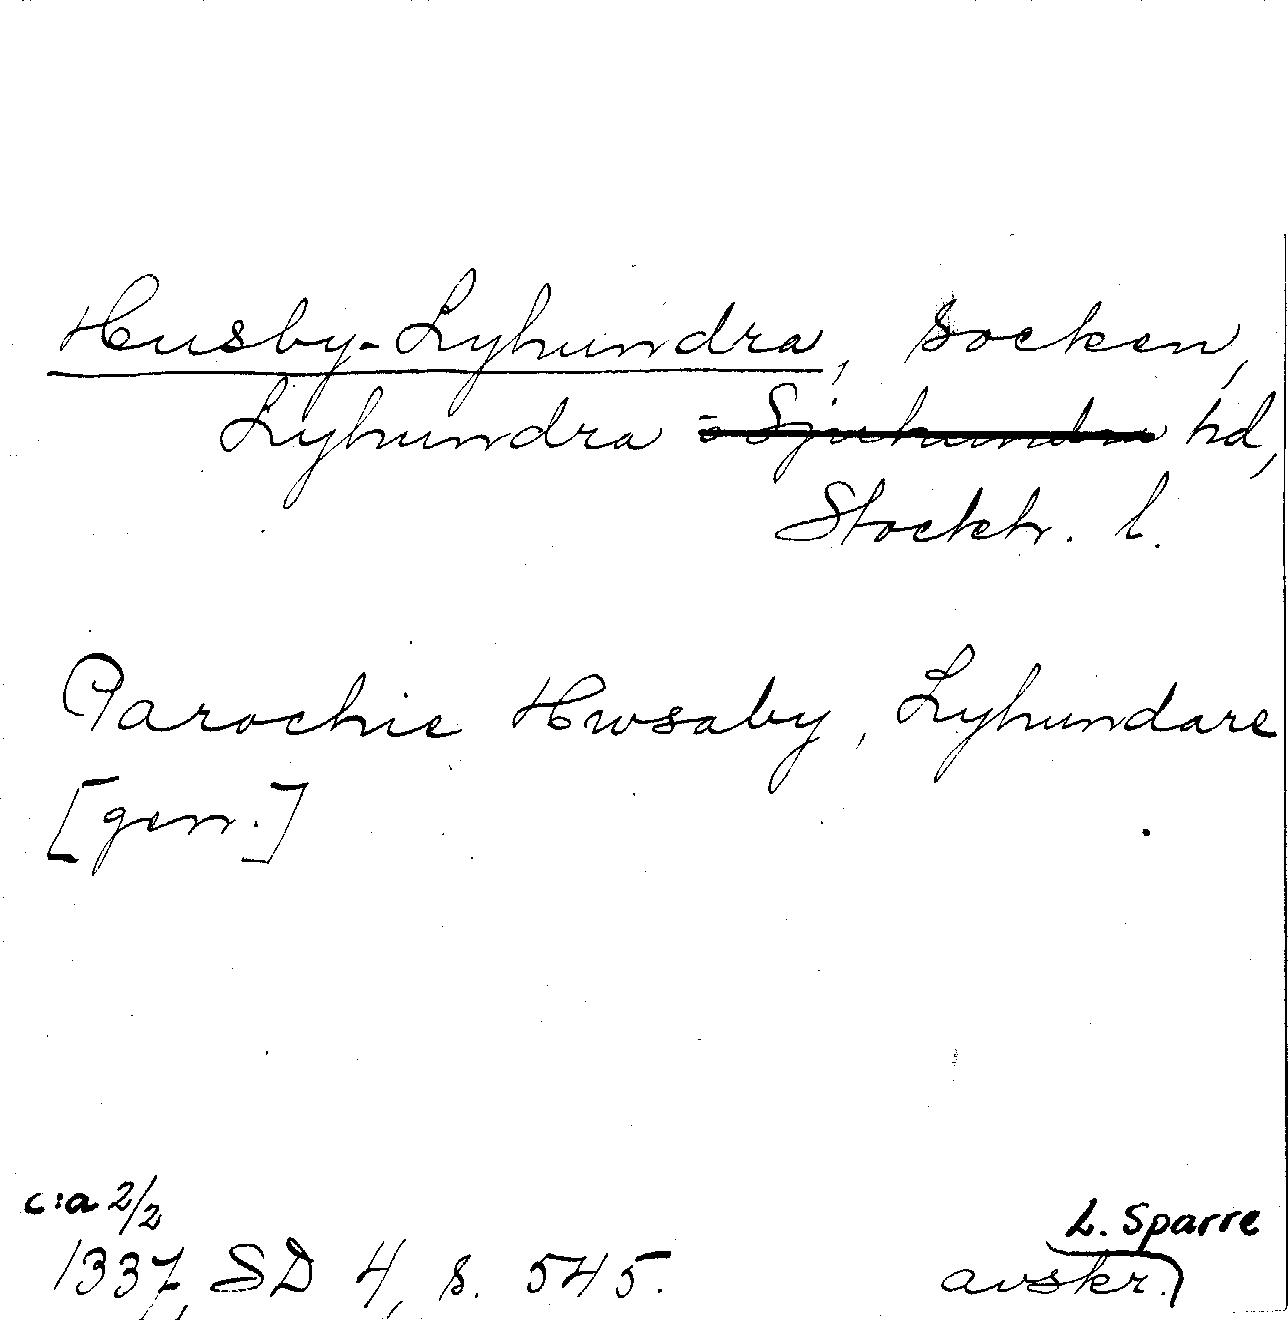 Husby-Lyhundra, socken,
Lyhundra o Sjuhundra hd,
Stockh. l.
Parochie Hwsaby, Lyhundare
[gen.]
c:a 2/2
1337, SD 4, s. 545.
L. Sparre
avskr.